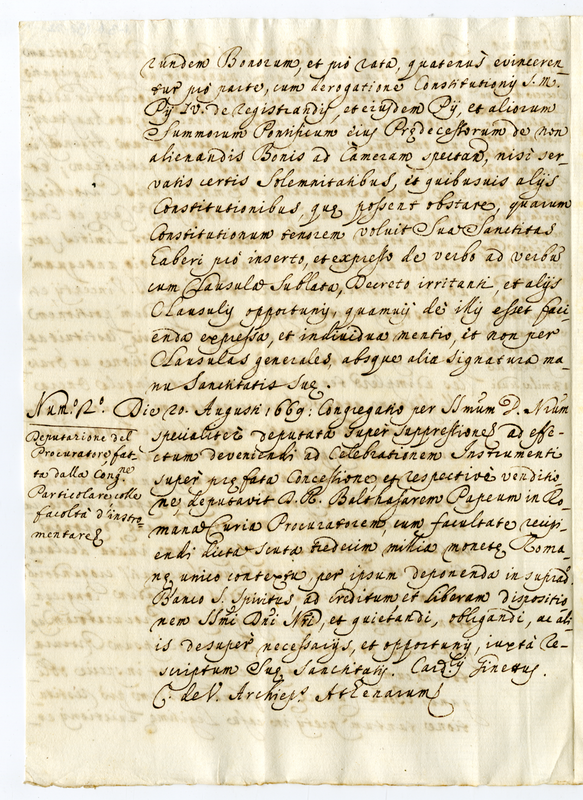 rundem Bonorum, et pro rata, quatenus evinceren-
tur pro parte, cum derogatione Constitutionis S. M.
Pij IV. de registrandis, et eiusdem Pij, et aliorum
Summorum Pontificum eius Prędecessorum de non
alienandis Bonis ad Cameram spectan, nisi ser-
vatis certis Solemnitatibus, et quibusvis alijs
Constitutionibus, quę possent obstare, quarum
Constitutionum tenorem voluit Sua Sanctitas
haberi pro inserto, et expresso de verbo ad verbū
cum Clausula Sublata, Decreto irritanti, et alijs
Clausulis opportunis, quamvis de illis esset faci-
enda expressa, et individua mentio, et non per
Clausulas generales, absque alia signatura ma-
nu Sanctitatis Suę.
Num.º 2.º Die 20. Augusti 1669: Congregatio per SSmum D. Nrum
Deputazione del
Procuratore fat-
ta dalla Cong.ne
Particolare colle
facoltà d'instro-
mentare
specialiter deputata super suppressione, ad effe-
ctum deveniendi ad Celebrationem Instrumenti
super pręfata Concessione et respective venditio-
ne, deputavit D. R. Balthasarem Papeum in Ro-
mana Curia Procuratorem, cum facultate recipi-
endi dicta scuta tredecim millia monetę Roma-
nę unico contextu per ipsum deponenda in supradᵒ
Banco S. Spiritus, ad creditum et liberam dispositio-
nem SSmi Dni Nri, et quietandi, obligandi, ac ali-
is desuper necessarijs, et opportunis, iuxta Re-
scriptum Suę Sanctitatis. Card.lis Ginettus.
C. de V. Archieps Athenarum